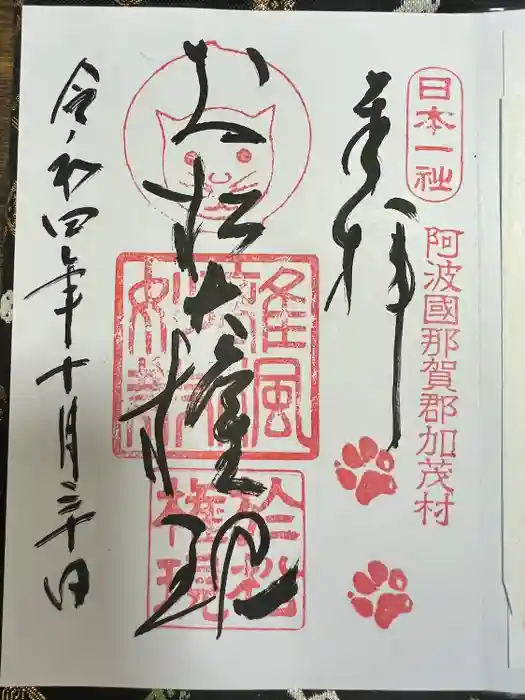 日本一社
阿波國那賀郡加茂村
奉拝
お松大権現
於松
権現
令和四年十月三十日